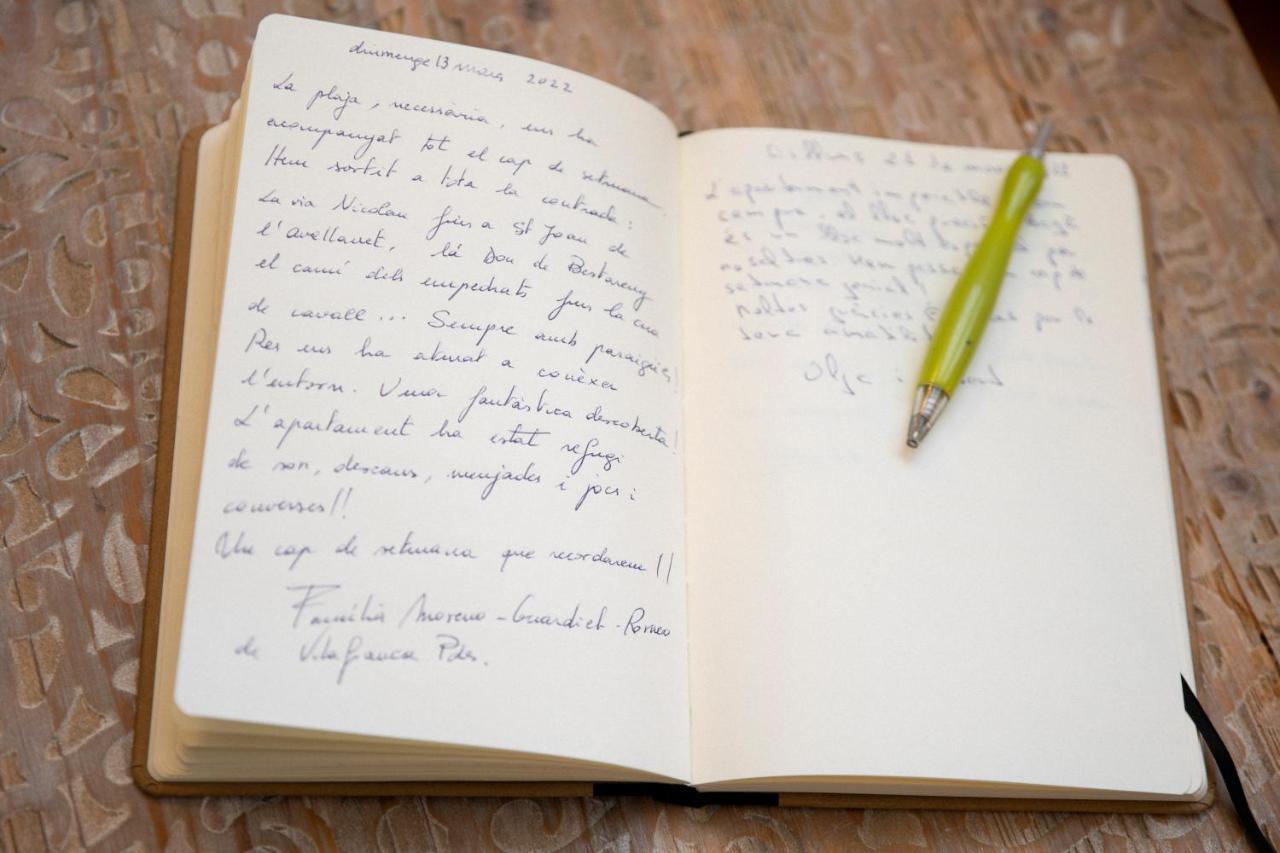 diumenge 13 març 2022
La pluja, necessària, ens ha
acompanyat tot el cap de setmana.
Hem sortit a tota la contrada:
La via Nicolau fins a St Joan de
l'avellanet, la Dou de Bastareny
el camí dels empedrats fins la cua
de cavall... Sempre amb paraigües!
Res ens ha aturat a conèxer
l'entorn. Una fantàstica descoberta!
L'apartament ha estat refugi
de son, descans, menjades i jocs i
converses!!
Un cap de setmana que recordarem!!
Família Moreno-Guardiet-Romeo
de Vilafranca Pdès.
Dilluns 28 de
L'apartament impecable
campa, el lloc
és un lloc molt per
nosaltres. Hem cap de
setmana genial!
Moltes gràcies per la
seva
Olga i